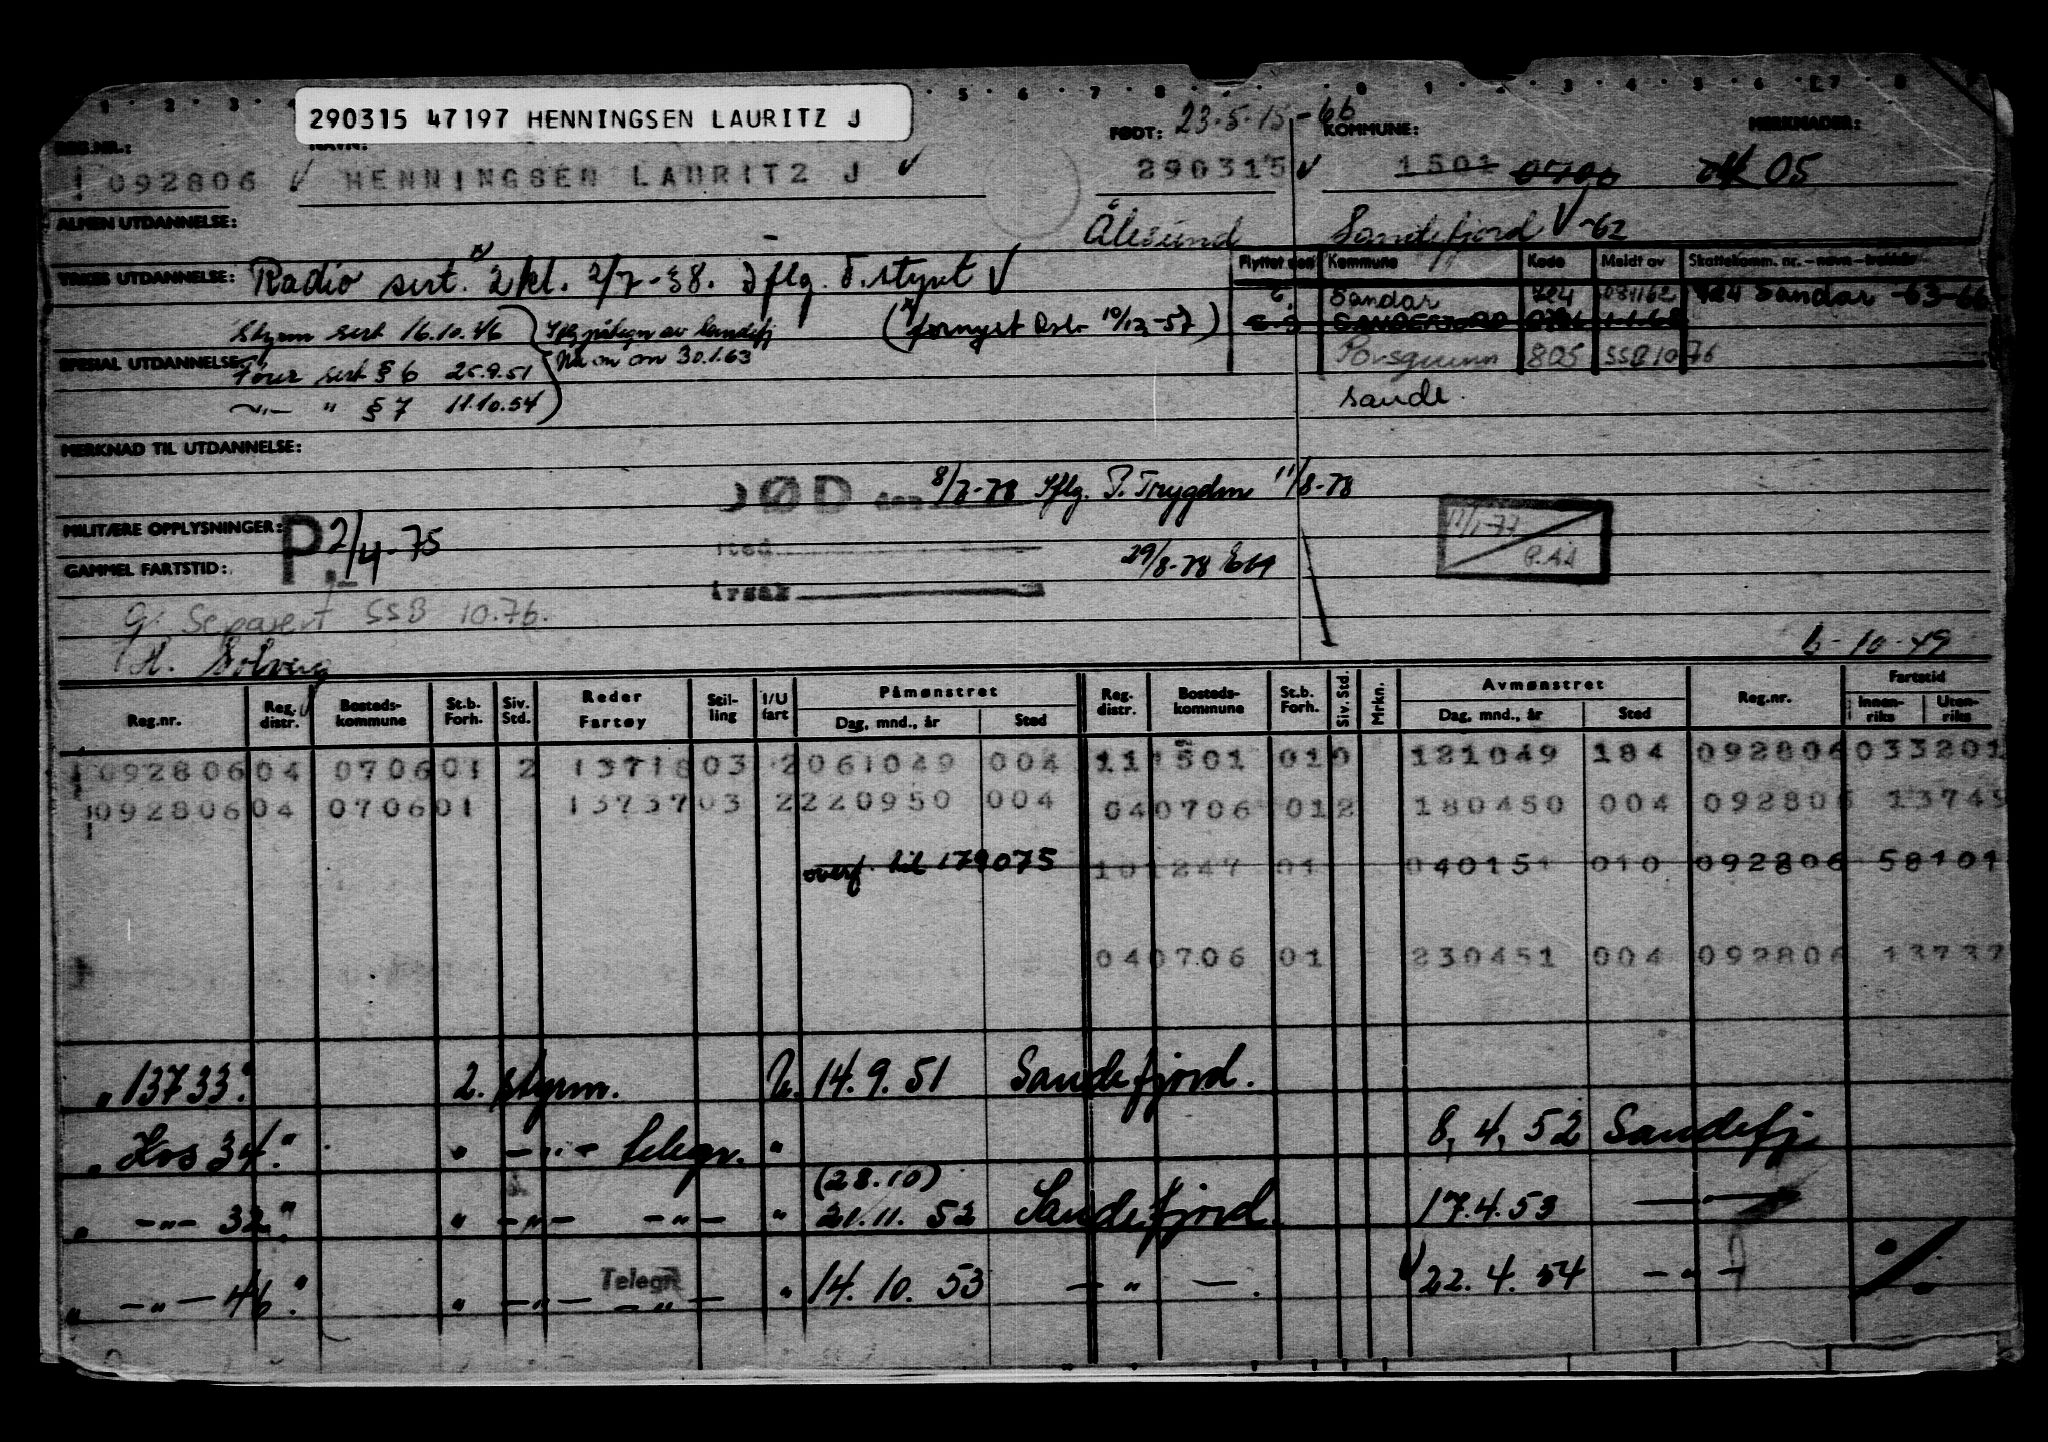 290315 47197 HENNINGSEN LAURITZ J
REG.NR.: NAVN: FØDT: 23.5.15 -66 KOMMUNE: MERKNADER:
092806 HENNINGSEN LAURITZ J 290315 1501 0706 05
ALMEN UTDANNELSE: Ålesund Sandefjord -62
YRKES UTDANNELSE: Radio sert. 2 kl. 2/7-38. Iflg. S.styret
Flyttet dato Kommune Kode Meldt av Skattekomm. nr. - navn - trekkår
Sandar 724 081162 724 Sandar -63-66
Styrm sert 16.10.46 Iflg påtegn av Sandefj (fornyet Oslo 10/12-57) SANDEFJORD 0706 1.1.68
SPESIAL UTDANNELSE: Fører sert § 6 25.9.51 30.1.63 Porsgrunn 805 SSB 10 76
-"- " § 7 11.10.54 Sande.
MERKNAD TIL UTDANNELSE:
DØD den 8/7-78 Iflg. P. Trygden 11/8-78
MILITÆRE OPPLYSNINGER: P. 2/4-75
sted 29/8-78
GAMMEL FARTSTID:
årsak
G: Separert SSB 10.76.
H. Solveig 6-10-49
Reg.nr. Reg. distr. Bosteds-kommune St.b. Forh. Siv. Std. Reder Fartøy Stil-ling I/U fart Påmønstret Dag, mnd., år Sted Reg-distr. Bosteds-kommune St.b. Forh. Siv. Std. Mrkn. Avmønstret Dag, mnd., år Sted Reg.nr. Fartstid Innen-riks Uten-riks
092806 04 0706 01 2 13718 03 2 061049 004 11 1501 01 0 121049 184 092806 033201
092806 04 0706 01 13737 03 2 220950 004 04 0706 01 2 180450 004 092806 13749
overf. til 179075 10 1247 01 040151 010 092806 58101
04 0706 01 230451 004 092806 13737
" 13733." 2. styrm. U. 14.9.51 Sandefjord.
" Hvs 34." " -"- telegr. " 8,4,52 Sandefj.
" -"- 32." " -"- -"- " (28.10) 21.11.52 Sandefjord 17.4.53 -"-
" -"- 46." " -"- Telegr. -"- " 14.10.53 -"-. 22.4.54 -"-